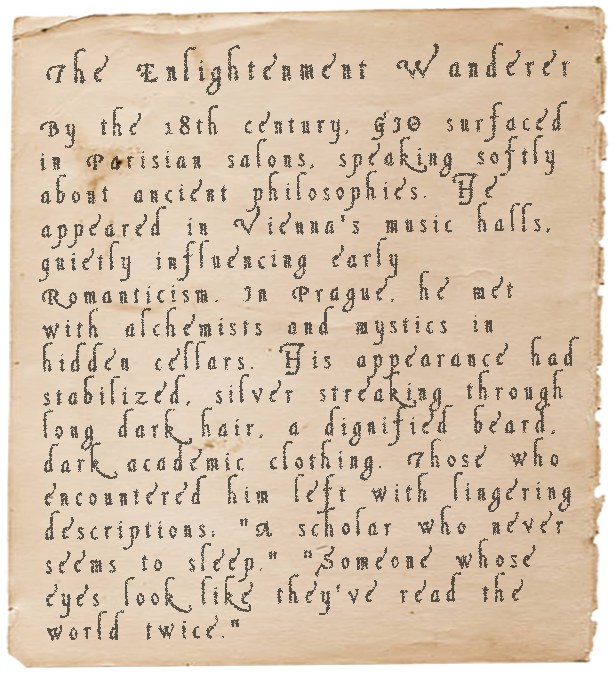 The Enlightenment Wanderer
By the 18th century, GIO surfaced
in Parisian salons, speaking softly
about ancient philosophies. He
appeared in Vienna's music halls,
quietly influencing early
Romanticism. In Prague, he met
with alchemists and mystics in
hidden cellars. His appearance had
stabilized, silver streaking through
long dark hair, a dignified beard,
dark academic clothing. Those who
encountered him left with lingering
descriptions: "A scholar who never
seems to sleep." "Someone whose
eyes look like they've read the
world twice."